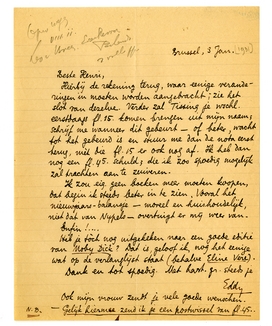 Brussel, 3 Jan. (1931)
Beste Henri,
Hierbij de rekening terug, waar eenige verande-
ringen in moeten worden aangebracht: zie het
slot van dezelve. Verder zal Tissing je wschl.
eerstdaags fl. 15 komen brengen uit mijn naam;
schrijf me wanneer dit gebeurt - of beter, wacht
tot het gebeurd is en stuur me dan de nota eerst
terug, met die fl. 15 er ook nog af. Ik heb dan
nog een fl. 45. schuld, die ik zoo spoedig mogelijk
zal trachten aan te zuiveren.
Ik zou eig. geen boeken meer moeten koopen,
dat begin ik steeds beter in te zien. Vooral het
nieuwjaars-balansje - moreel en huishoudelijk,
niet dat van Nypels - overtuigt er mij weer van.
Enfin!....
Wil je tòch nog uitgekeken naar een goede editie
van Moby Dick? Dat is, geloof ik, nog het eenige
wat op de verlanglijst staat (behalve Eline Vere).
Dank en tot spoedig. Met hart. gr. steeds je
Eddy
Ook mijn vrouw zendt je vele goede wenschen.
N.B. - Gelijk hiermee zend ik je een postwissel van fl. 45.-